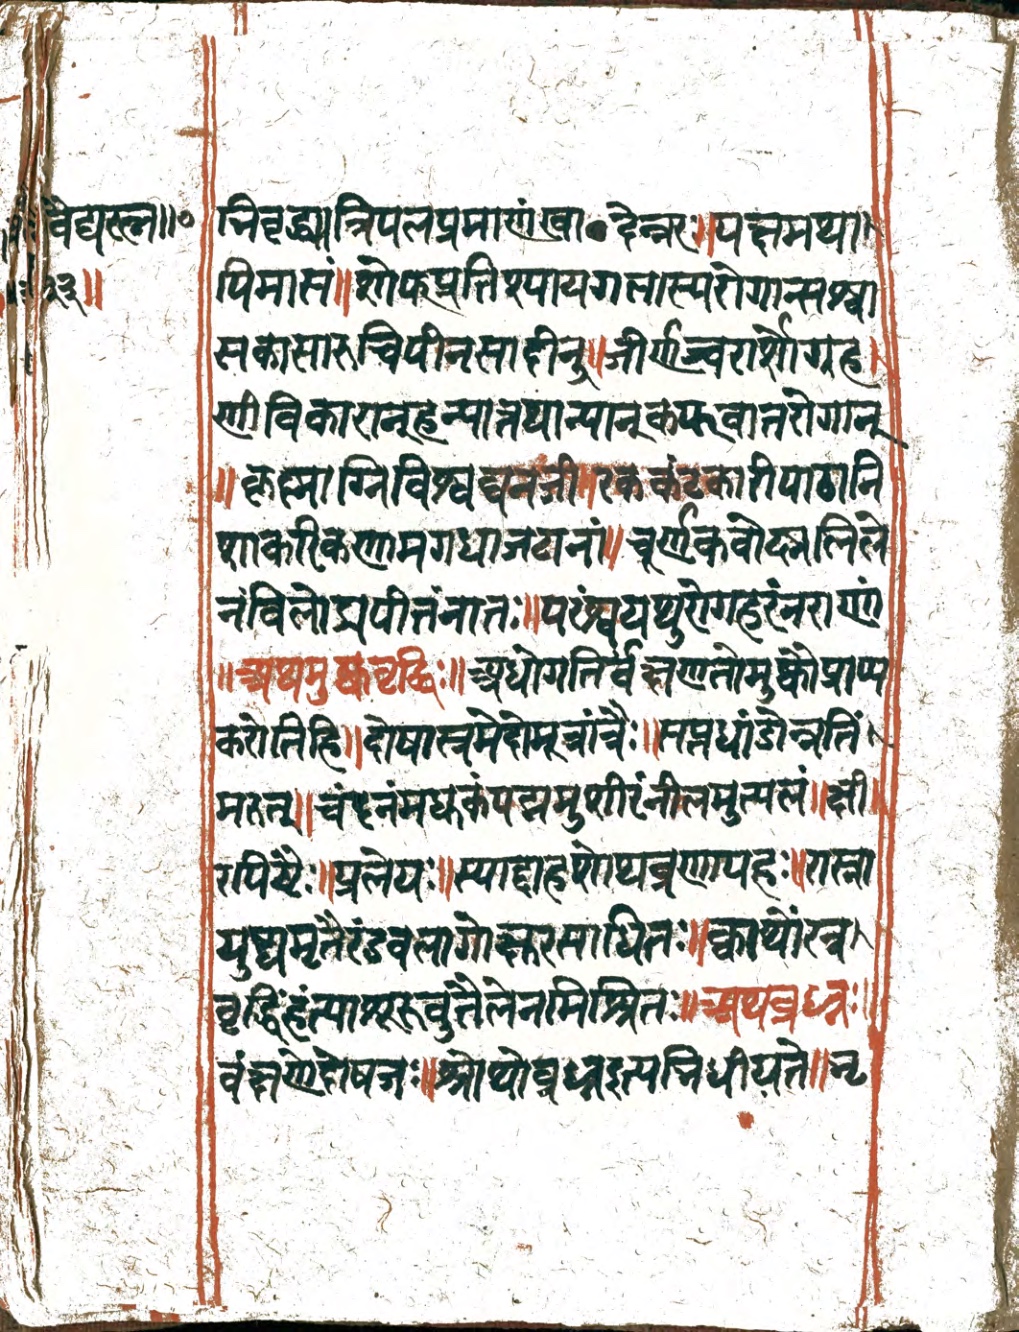 वैद्यरत्न॥०
भिवृद्ध्या त्रिपलप्रमाणं खा॰देन्नरः॥पक्षमथा
पिमासं॥शोफप्रतिश्यायगलास्यरोगान्सश्वा
सकासारुचिपीनसादीन्॥जीर्णज्वरार्शोग्रह
णीविकारान्हन्यात्तथान्यान्कफवातरोगान्
॥कृष्णाग्निविश्वघनजीरककंटकारीपाठानि
शाकरिकणामगधाजटानां॥चूर्णंकवोष्णलिले
नंविलोड्यपीतंनातः॥परंश्वयथुरोगहरंनराणां
॥अथमुष्कवृद्धिः॥अधोगतिर्वंक्षणतोमुष्कौप्राप्य
करोतिहि॥दोषास्त्रमेदोमूत्रांत्रैः॥सप्तधांडोन्नतिं
मरुत्॥चंदनंमधुकंपद्ममुशीरंनीलमुत्पलं॥क्षी
रपिष्टैः॥प्रलेपः॥स्याद्दाहशोथव्रणापहः॥रास्ना
युष्ट्यमृतैरंडबलागोक्षुरसाधितः॥क्वाथोंत्र
वृद्धिंहंत्याशुरुवुतैलेनमिश्रितः॥अथब्रध्नः
वंक्षणेदोषजः॥श्शोथोब्रध्नइत्यभिधीयते॥भृ